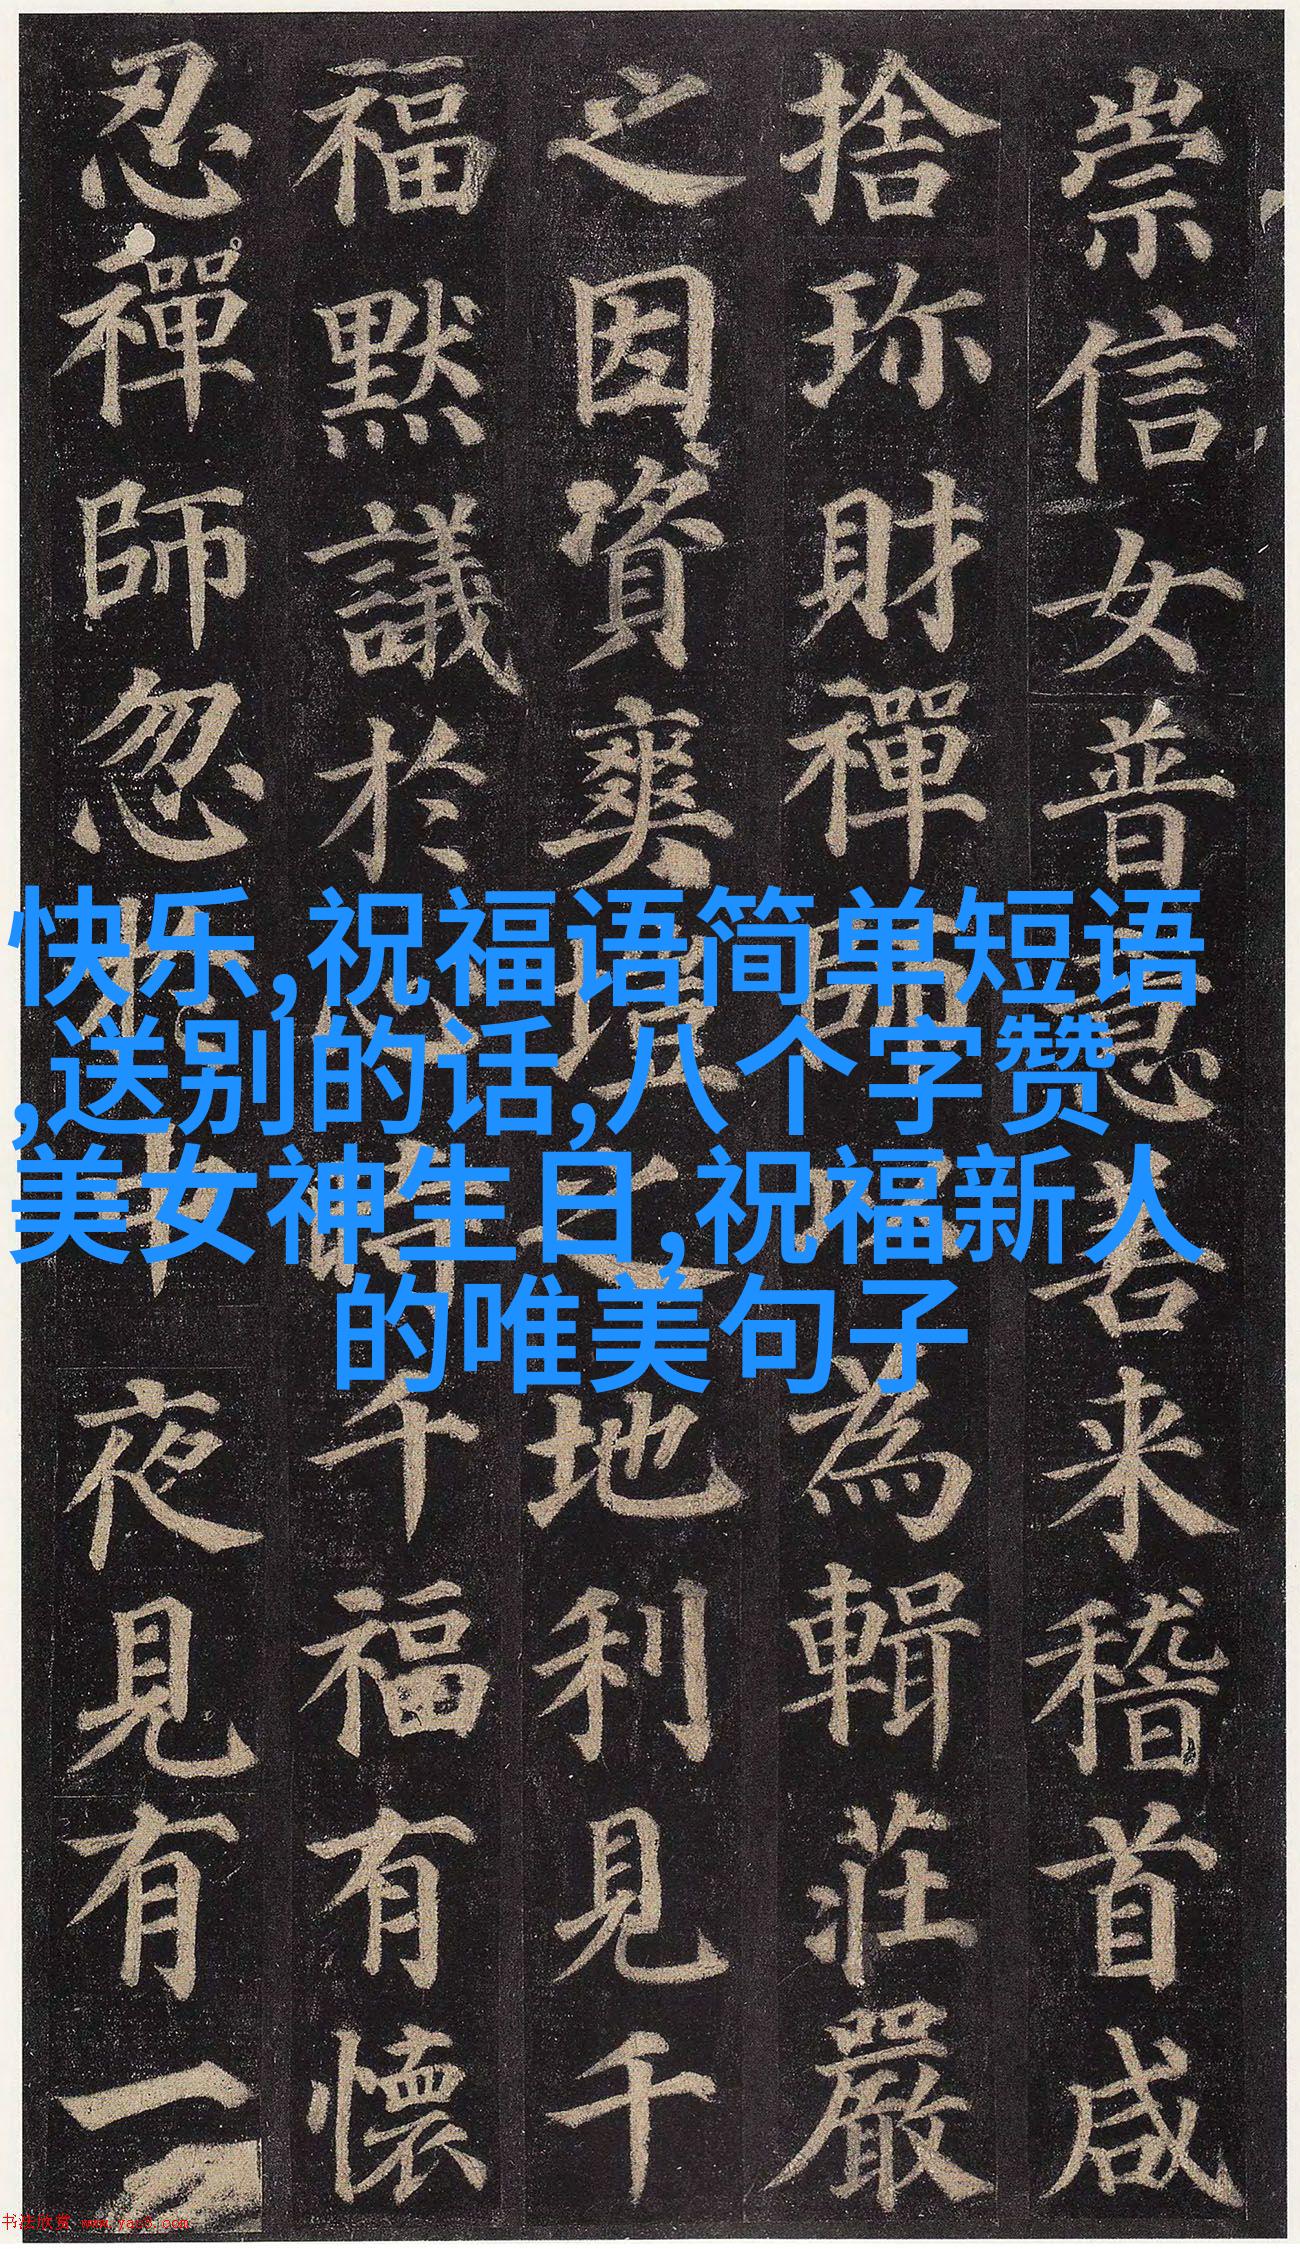 崇信女普意善来稽首咸
捨珎財禪師為輯莊嚴
之因資爽塏之地利見千
福默議於心時千福有懷
忍禪師忽於中夜見有一
快乐,祝福语简单短语
,送别的话,八个字赞
美女神生日,祝福新人
的唯美句子
书法欣赏 www.yac8.com